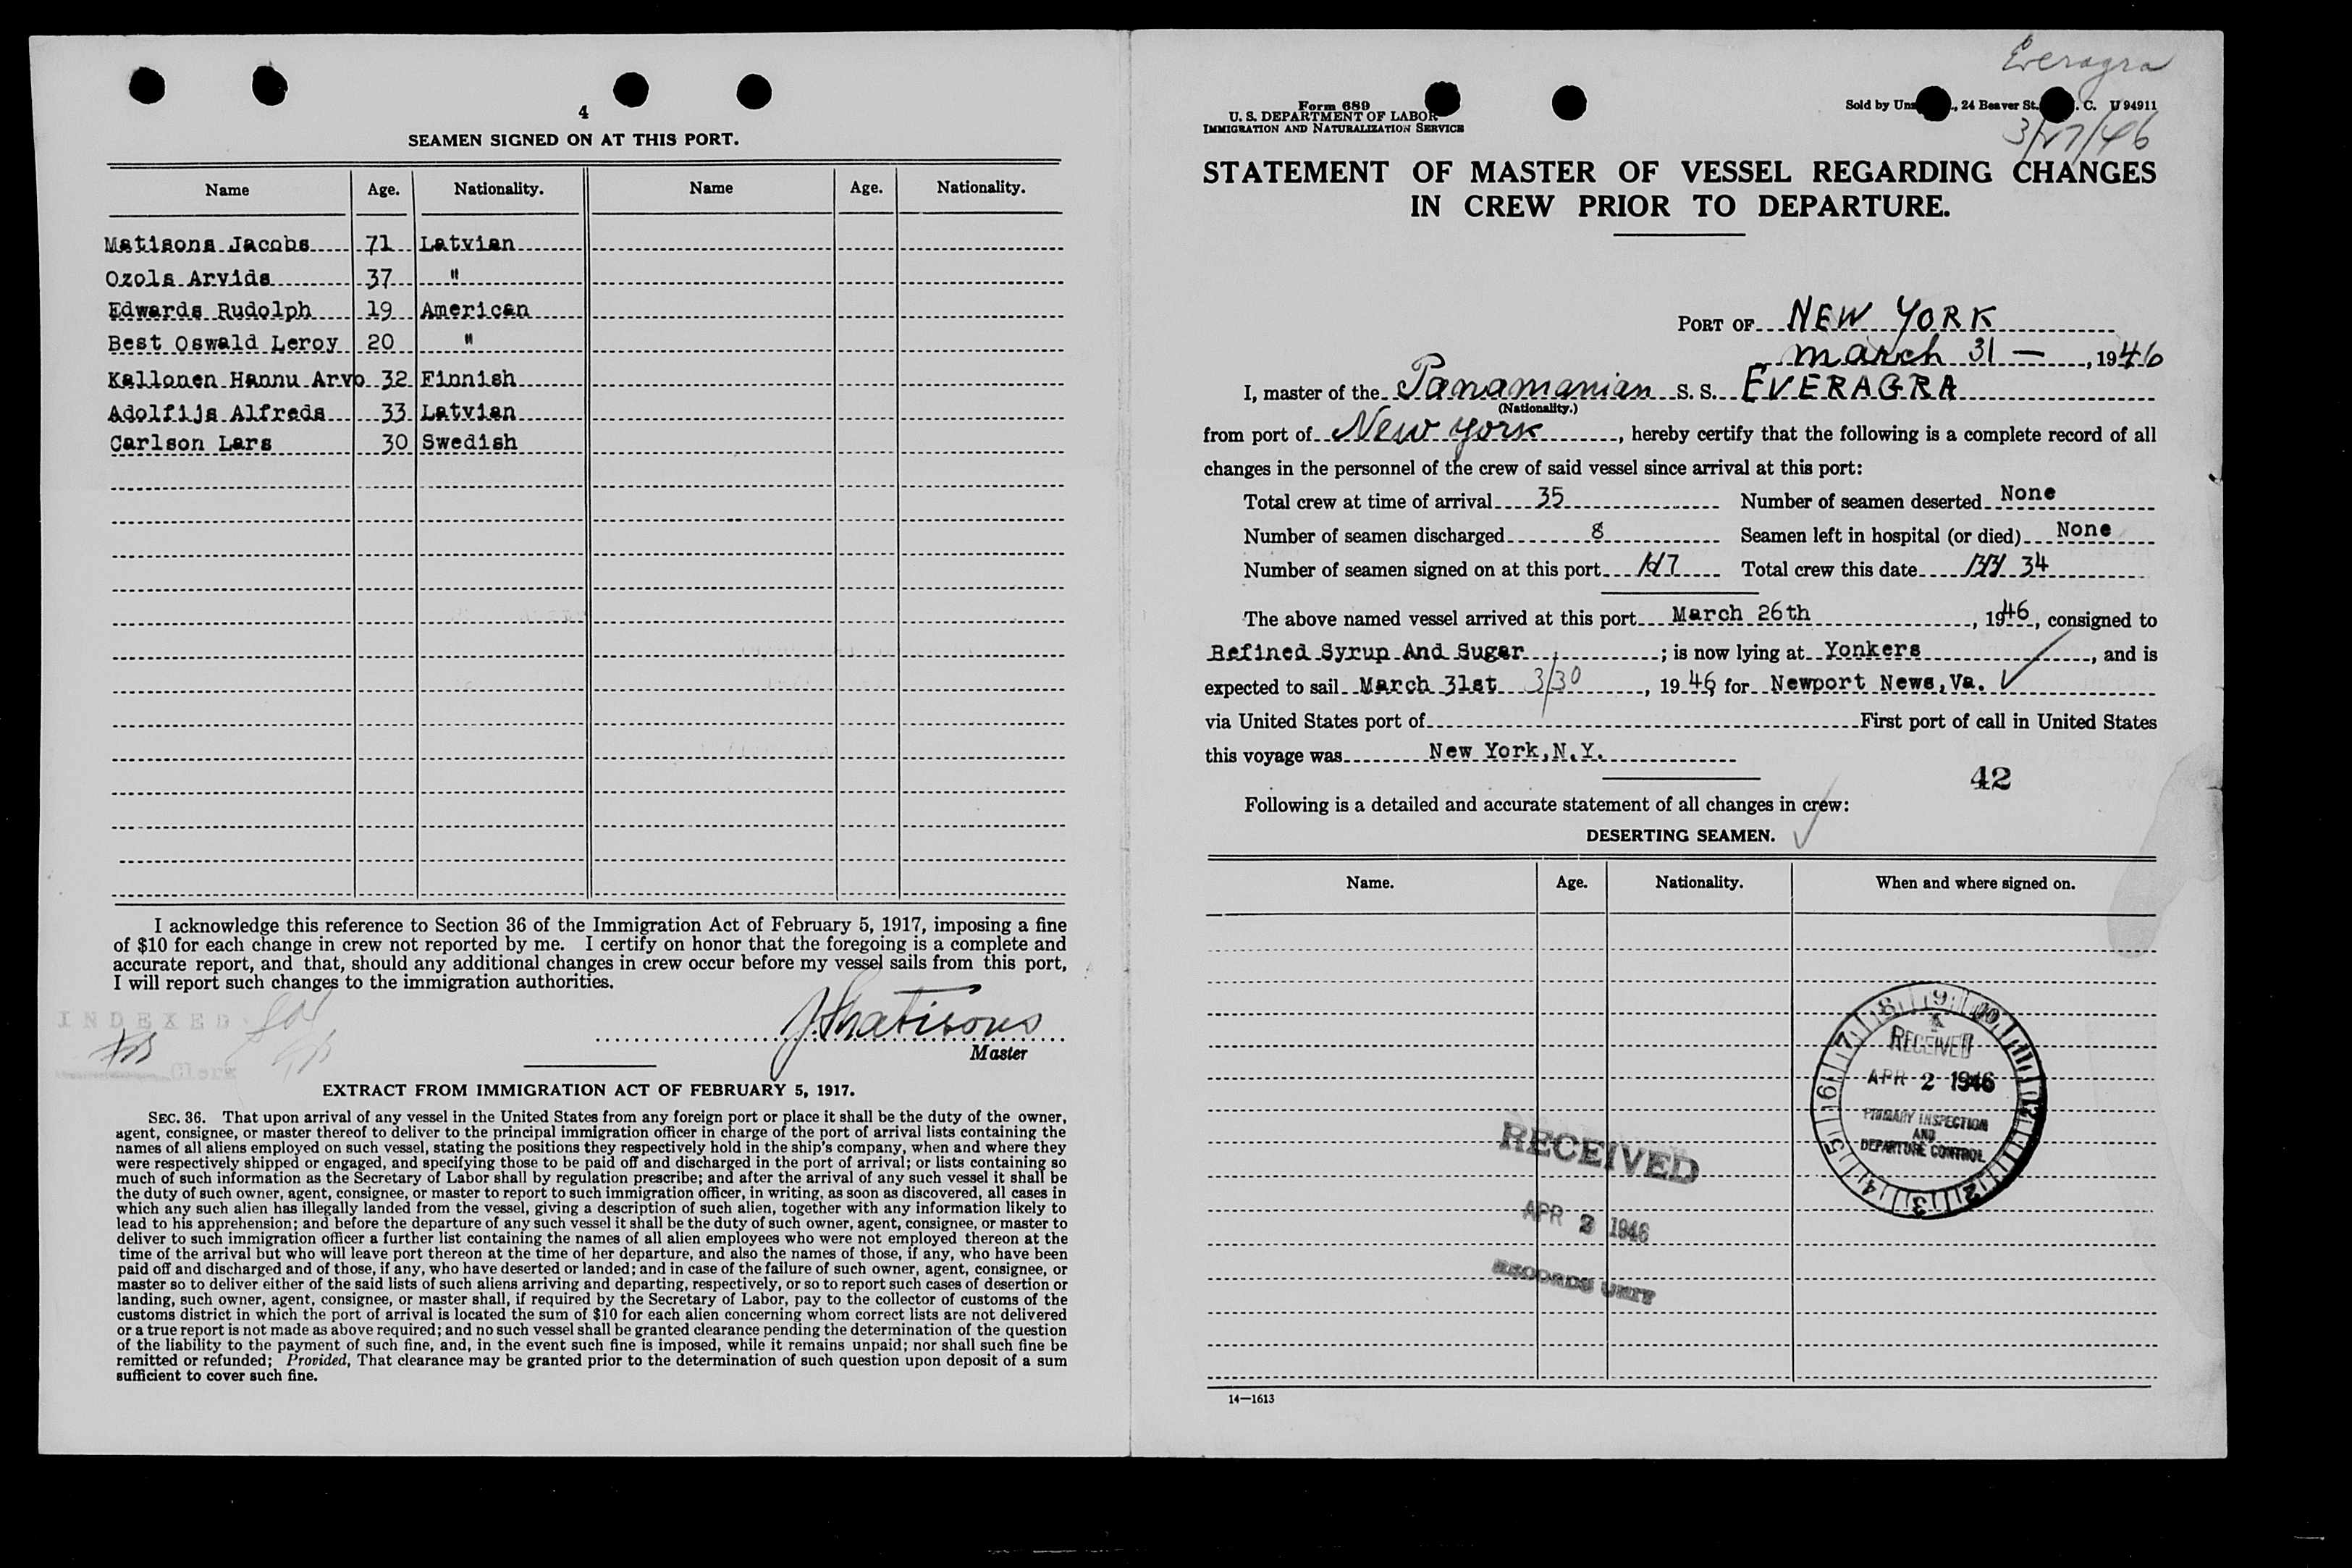 4
SEAMEN SIGNED ON AT THIS PORT.
Name Age. Nationality. Name Age. Nationality.
Matisons Jacobs 71 Latvian
Ozols Arvids 37 "
Edwards Rudolph 19 American
Best Oswald Leroy 20 "
Kallonen Hannu Arvo 32 Finnish
Adolfijs Alfreds 33 Latvian
Carlson Lars 30 Swedish
I acknowledge this reference to Section 36 of the Immigration Act of February 5, 1917, imposing a fine
of $10 for each change in crew not reported by me. I certify on honor that the foregoing is a complete and
accurate report, and that, should any additional changes in crew occur before my vessel sails from this port,
I will report such changes to the immigration authorities.
INDEXED
Clerk
J. Matisons
Master
EXTRACT FROM IMMIGRATION ACT OF FEBRUARY 5, 1917.
SEC. 36. That upon arrival of any vessel in the United States from any foreign port or place it shall be the duty of the owner,
agent, consignee, or master thereof to deliver to the principal immigration officer in charge of the port of arrival lists containing the
names of all aliens employed on such vessel, stating the positions they respectively hold in the ship's company, when and where they
were respectively shipped or engaged, and specifying those to be paid off and discharged in the port of arrival; or lists containing so
much of such information as the Secretary of Labor shall by regulation prescribe; and after the arrival of any such vessel it shall be
the duty of such owner, agent, consignee, or master to report to such immigration officer, in writing, as soon as discovered, all cases in
which any such alien has illegally landed from the vessel, giving a description of such alien, together with any information likely to
lead to his apprehension; and before the departure of any such vessel it shall be the duty of such owner, agent, consignee, or master to
deliver to such immigration officer a further list containing the names of all alien employees who were not employed thereon at the
time of the arrival but who will leave port thereon at the time of her departure, and also the names of those, if any, who have been
paid off and discharged and of those, if any, who have deserted or landed; and in case of the failure of such owner, agent, consignee, or
master so to deliver either of the said lists of such aliens arriving and departing, respectively, or so to report such cases of desertion or
landing, such owner, agent, consignee, or master shall, if required by the Secretary of Labor, pay to the collector of customs of the
customs district in which the port of arrival is located the sum of $10 for each alien concerning whom correct lists are not delivered
or a true report is not made as above required; and no such vessel shall be granted clearance pending the determination of the question
of the liability to the payment of such fine, and, in the event such fine is imposed, while it remains unpaid; nor shall such fine be
remitted or refunded; Provided, That clearance may be granted prior to the determination of such question upon deposit of a sum
sufficient to cover such fine.
Everagra
Form 689
U. S. DEPARTMENT OF LABOR
IMMIGRATION AND NATURALIZATION SERVICE
Sold by Unz , 24 Beaver St. . C. U 94911
3/27/46
STATEMENT OF MASTER OF VESSEL REGARDING CHANGES
IN CREW PRIOR TO DEPARTURE.
PORT OF NEW YORK
March 31 — , 1946
I, master of the Panamanian S. S. EVERAGRA
(Nationality.)
from port of New York , hereby certify that the following is a complete record of all
changes in the personnel of the crew of said vessel since arrival at this port:
Total crew at time of arrival 35 Number of seamen deserted None
Number of seamen discharged 8 Seamen left in hospital (or died) None
Number of seamen signed on at this port 7 Total crew this date 34
The above named vessel arrived at this port March 26th , 1946, consigned to
Refined Syrup And Sugar ; is now lying at Yonkers , and is
expected to sail March 31st 3/30 , 1946 for Newport News, Va.
via United States port of First port of call in United States
this voyage was New York, N.Y.
42
Following is a detailed and accurate statement of all changes in crew:
DESERTING SEAMEN.
Name. Age. Nationality. When and where signed on.
RECEIVED
APR 2 1946
PRIMARY INSPECTION
AND
DEPARTURE CONTROL
RECEIVED
APR 2 1946
RECORDS UNIT
14—1613